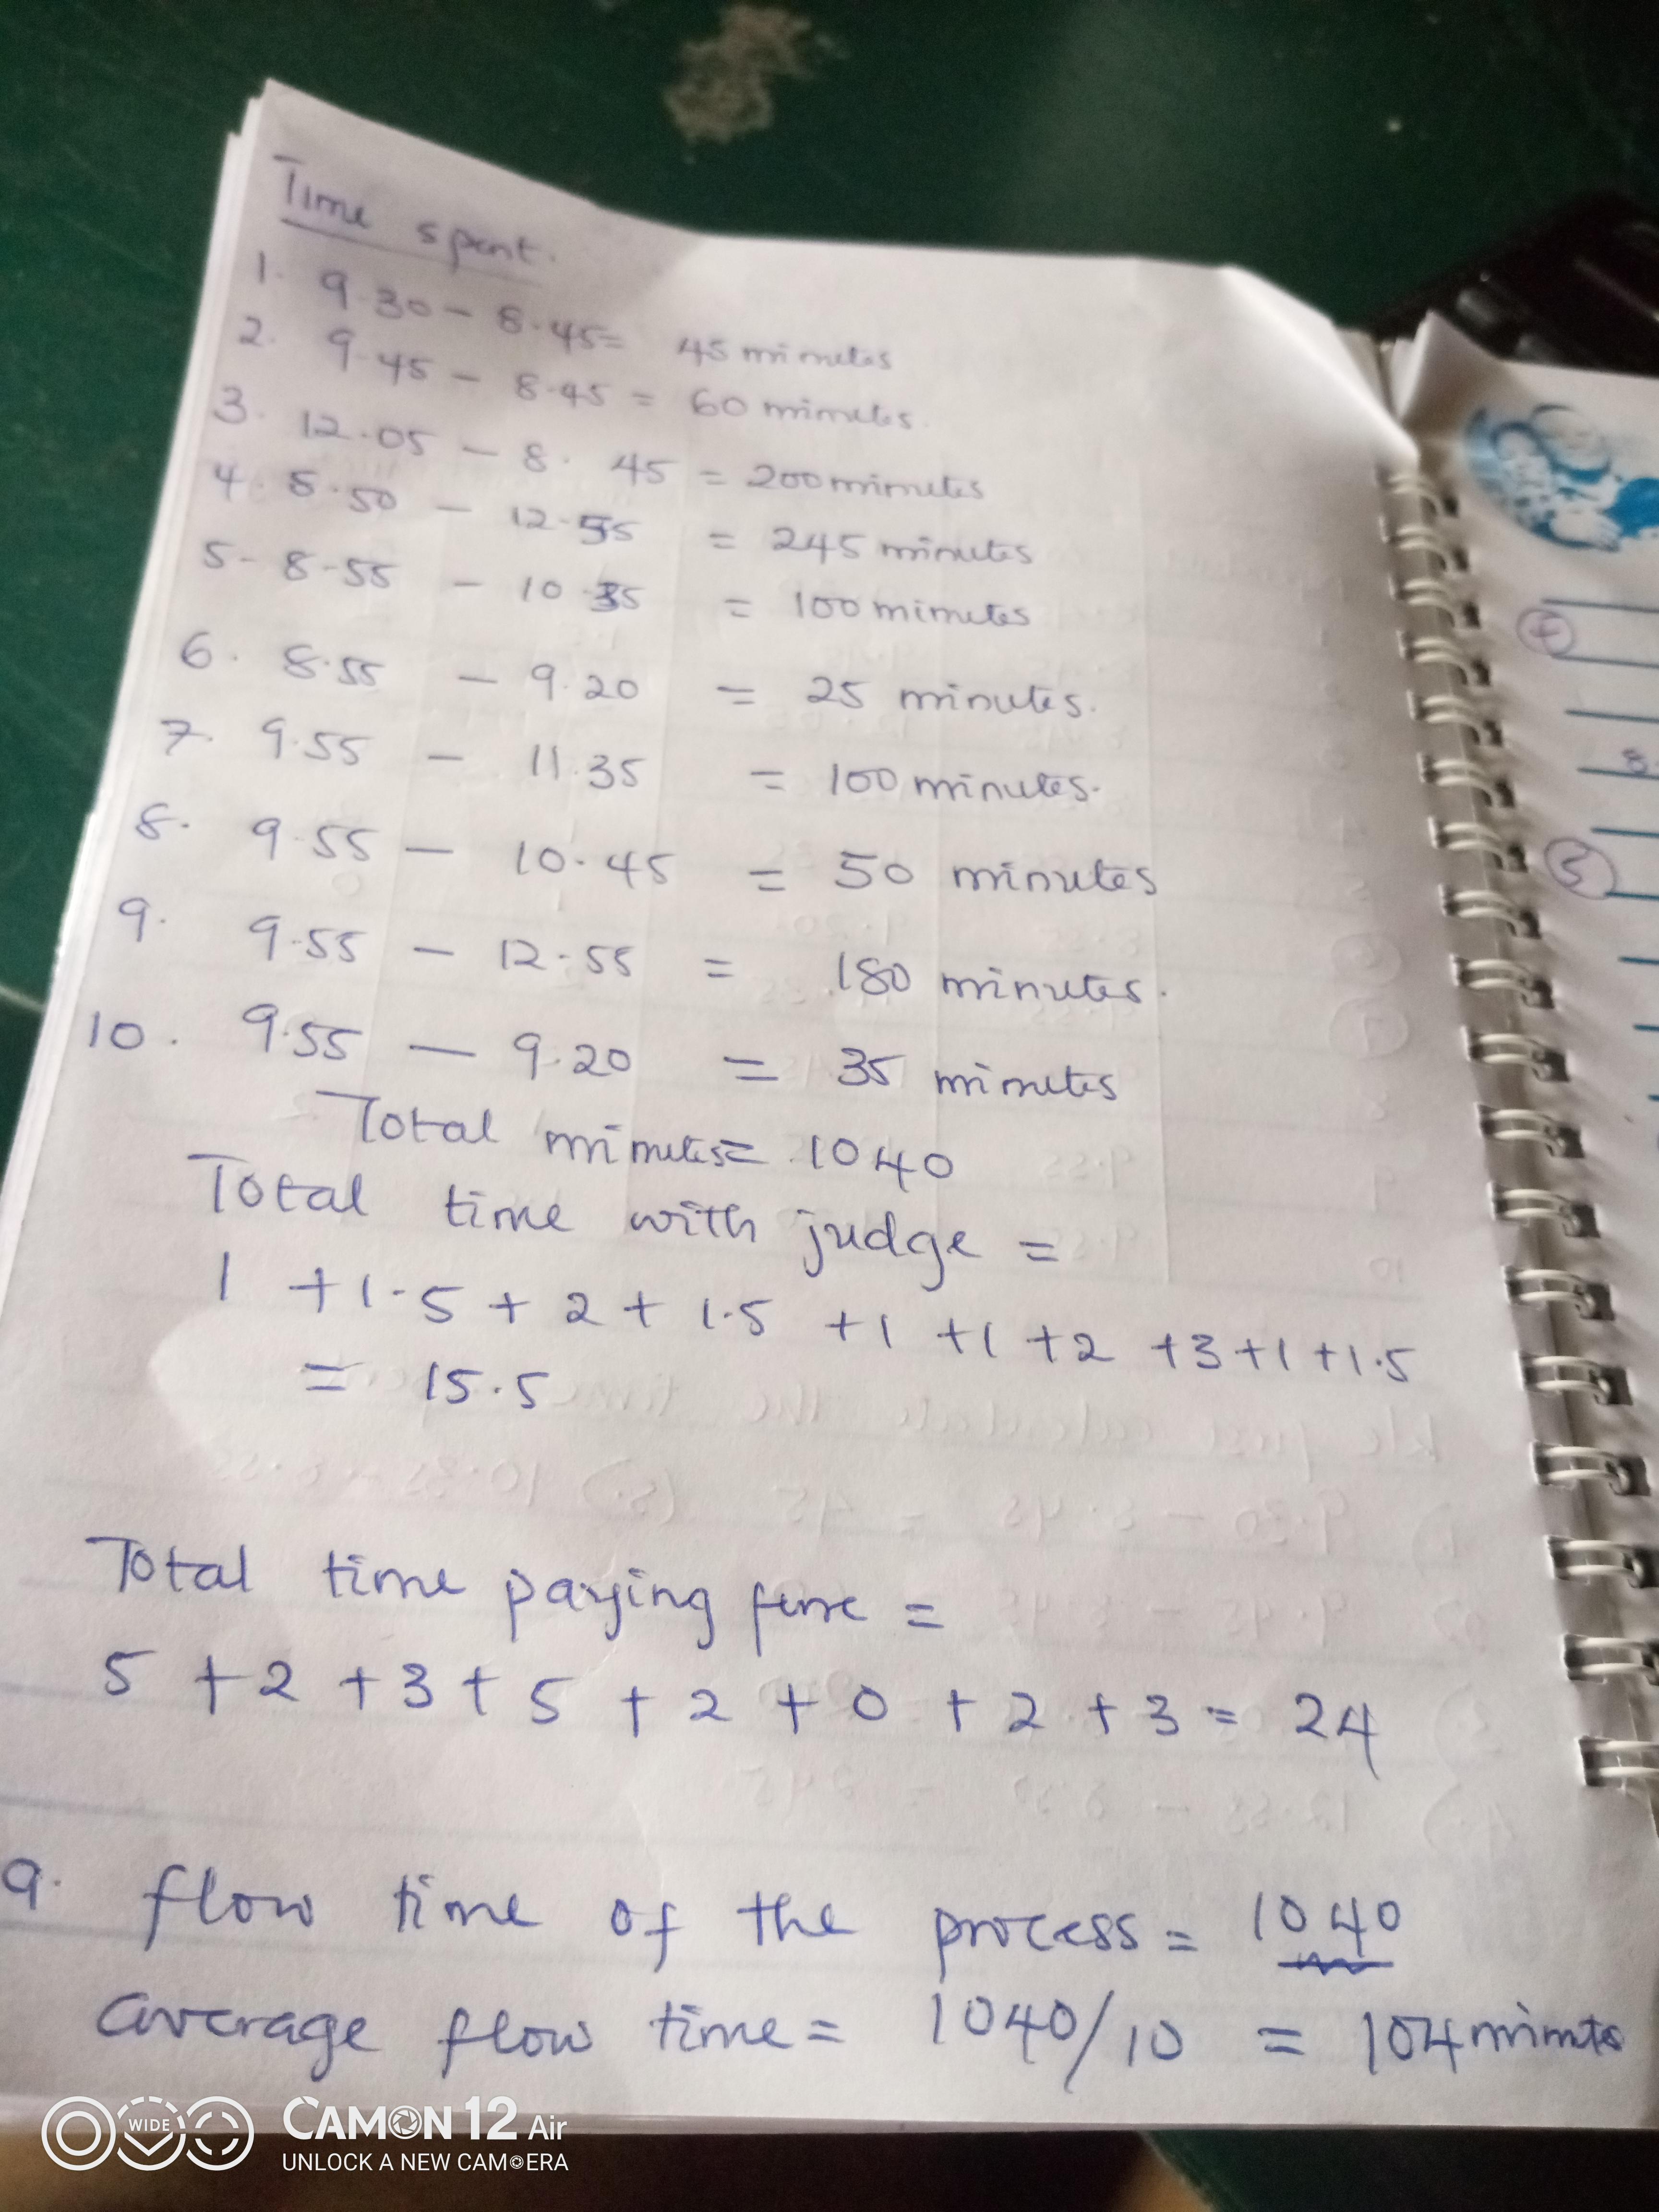 Time spent.
1. 9.30 - 8.45 = 45 minutes
2. 9.45 - 8.45 = 60 minutes.
3. 12.05 - 8.45 = 200 minutes
4. 8.50 - 12.55 = 245 minutes
5- 8-55 - 10.35 = 100 minutes
6. 8.55 - 9.20 = 25 minutes.
7. 9.55 - 11.35 = 100 minutes.
8. 9.55 - 10.45 = 50 minutes
9. 9.55 - 12.55 = 180 minutes.
10. 9.55 - 9.20 = 35 minutes
Total minutes = 1040
Total time with judge =
1 + 1.5 + 2 + 1.5 + 1 + 1 + 2 + 3 + 1 + 1.5
= 15.5
Total time paying fine =
5 + 2 + 3 + 5 + 2 + 0 + 2 + 3 = 24
9. flow time of the process = 1040
average flow time = 1040/10 = 104 minutes
4
8.
5
WIDE
CAMON 12 Air
UNLOCK A NEW CAMERA